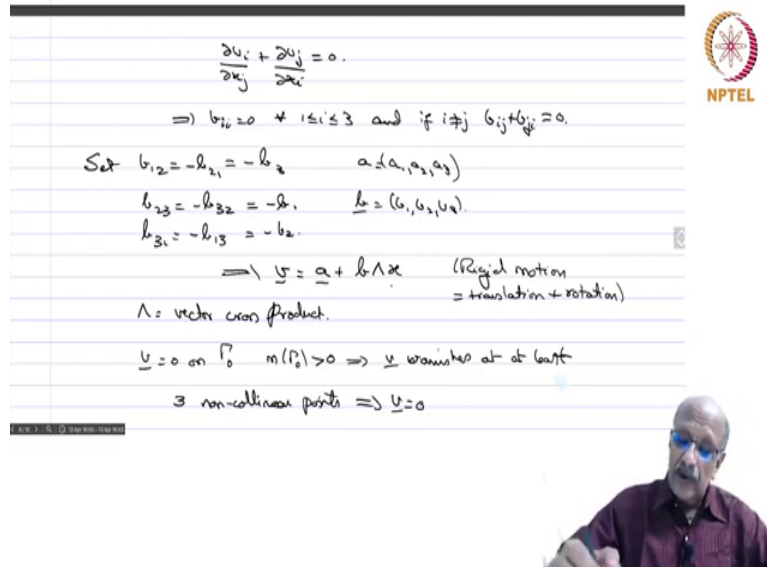 ∂vᵢ/∂xⱼ + ∂vⱼ/∂xᵢ = 0.
⇒ bᵢᵢ = 0 ∀ 1≤i≤3 and if i≠j bᵢⱼ+bⱼᵢ = 0.
Set b₁₂ = -b₂₁ = -b₃ a = (a₁, a₂, a₃)
b₂₃ = -b₃₂ = -b₁ b = (b₁, b₂, b₃).
b₃₁ = -b₁₃ = -b₂.
⇒ v = a + b Λ x (Rigid motion
= translation + rotation)
Λ = vector cross product.
v = 0 on Γ₀ m(Γ₀) > 0 ⇒ v vanishes at at least
3 non-collinear points ⇒ v = 0
NPTEL